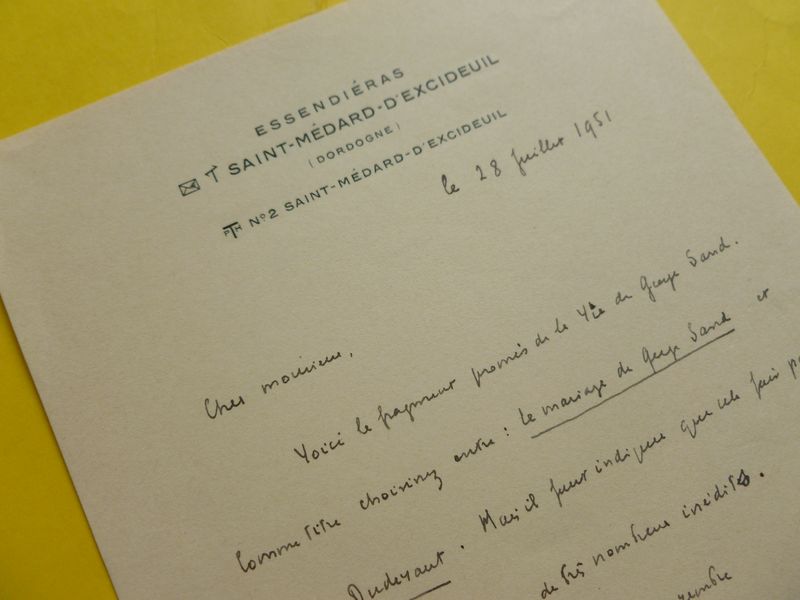 ESSENDIÉRAS
SAINT-MÉDARD-D'EXCIDEUIL
(DORDOGNE)
PTH N° 2 SAINT-MÉDARD-D'EXCIDEUIL
le 28 juillet 1951
Cher monsieur,
Voici le fragment promis de la Vie de George Sand.
Comme titre choisissez entre : Le mariage de George Sand et
Dudevant. Mais il faut indiquer que cela fait
de très nombreux inédits.